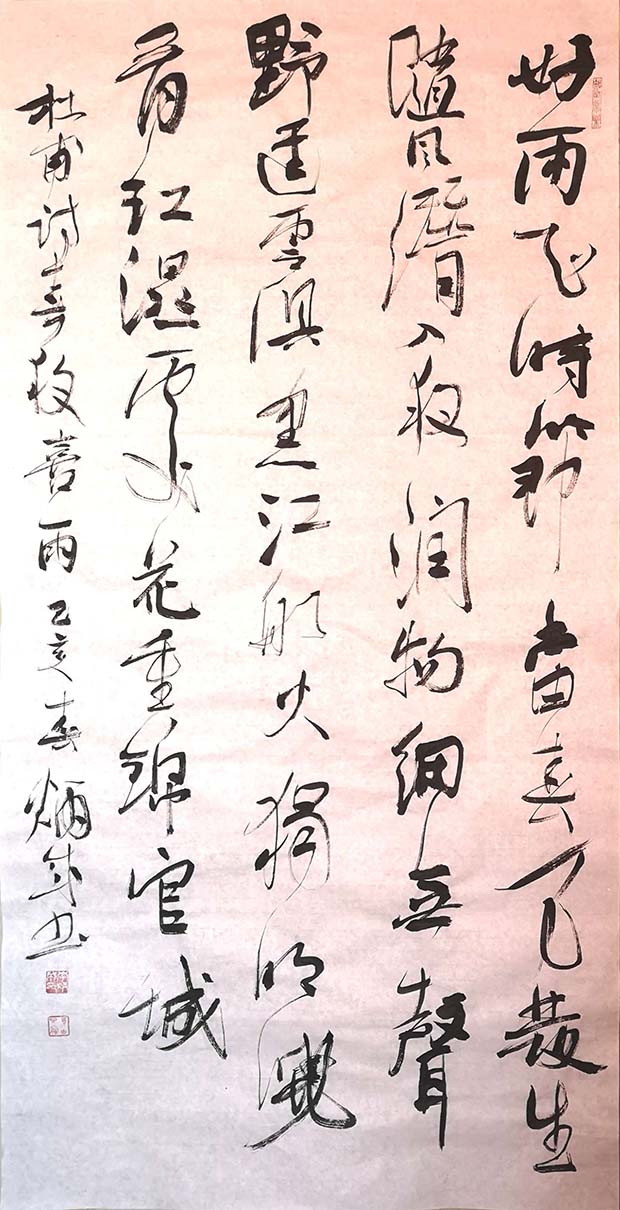 好雨知時節當春乃發生
隨風潛入夜润物細無聲
野徑雲俱黑江船火獨明曉
看紅濕處花重錦官城
杜甫詩春夜喜雨己亥春炳书